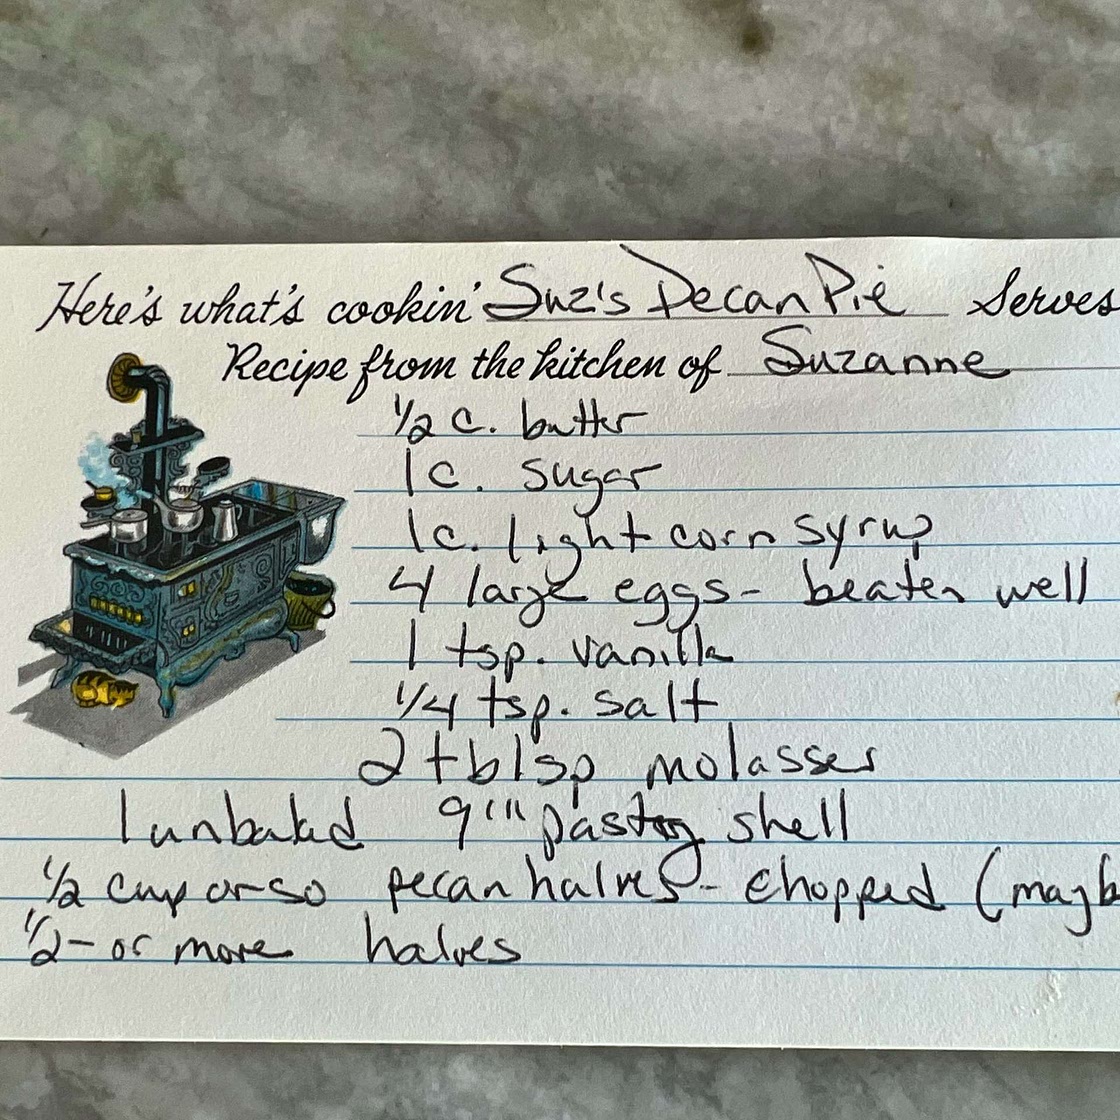 Here's what's cookin' Suz's Pecan Pie Serves
Recipe from the kitchen of Suzanne
1/2 c. butter
1 c. sugar
1 c. light corn syrup
4 large eggs - beaten well
1 tsp. vanilla
1/4 tsp. salt
2 tblsp molasses
1 unbaked 9"" pastry shell
1/2 cup or so pecan halves - chopped (mayb
1/2 - or more halves